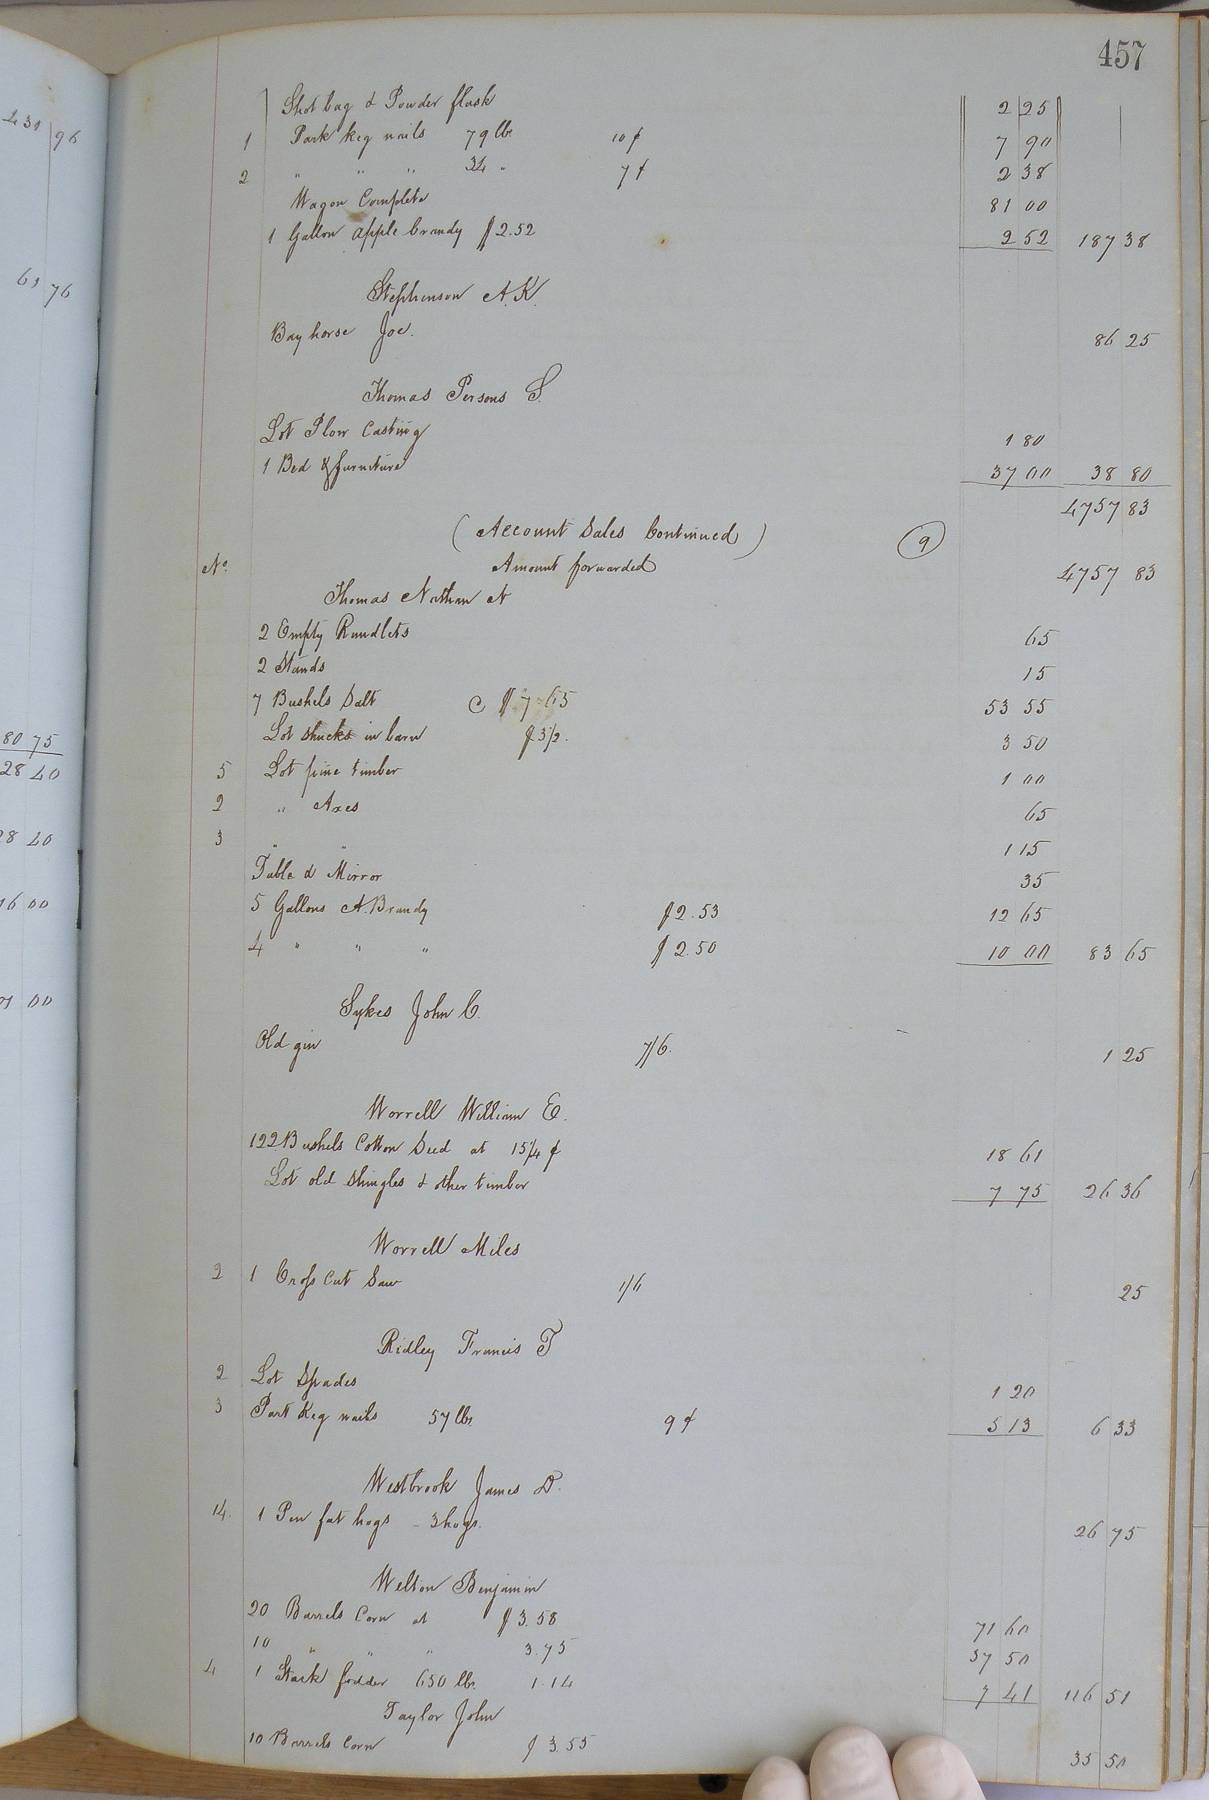 457
431 96
61 76
80 75
28 40
28 40
16 00
00
Shot bag & Powder flask 2 25
1 Part keg nails 79 lbs 10¢ 7 90
2 " " " 34 " 7¢ 2 38
Wagon Complete 81 00
1 Gallon apple brandy $2.52 2 52 187 38
Stephenson A.K.
Bay horse Joe. 86 25
Thomas Persons S.
Lot Plow Casting 1 80
1 Bed & furniture 37 00 38 80
4757 83
(Account Sales Continued) 9
No. Amount forwarded 4757 83
Thomas Nathan N
2 Empty Rundlets 65
2 Stands 15
7 Bushels Salt @ $7.65 53 55
Lot shucks in barn $3½. 3 50
5 Lot pine timber 1 00
2 " Axes 65
3 " " 1 15
Table & Mirror 35
5 Gallons A. Brandy $2.53 12 65
4 " " " $2.50 10 00 83 65
Sykes John C.
Old gin 7/6. 1 25
Worrell William E.
122 Bushels Cotton Seed at 15¼¢ 18 61
Lot old shingles & other timber 7 75 26 36
Worrell Miles
2 1 Cross Cut Saw 1/6 25
Ridley Francis T
2 Lot Spades 1 20
3 Part Keg nails 57 lbs 9¢ 5 13 6 33
Westbrook James D.
14. 1 Pen fat hogs - 3 hogs. 26 75
Welton Benjamin
20 Barrels Corn at $3.58 71 60
10 " " " 3.75 37 50
4 1 Stack fodder 650 lbs. 1.14 7 41 116 51
Taylor John
10 Barrels Corn $3.55 35 50